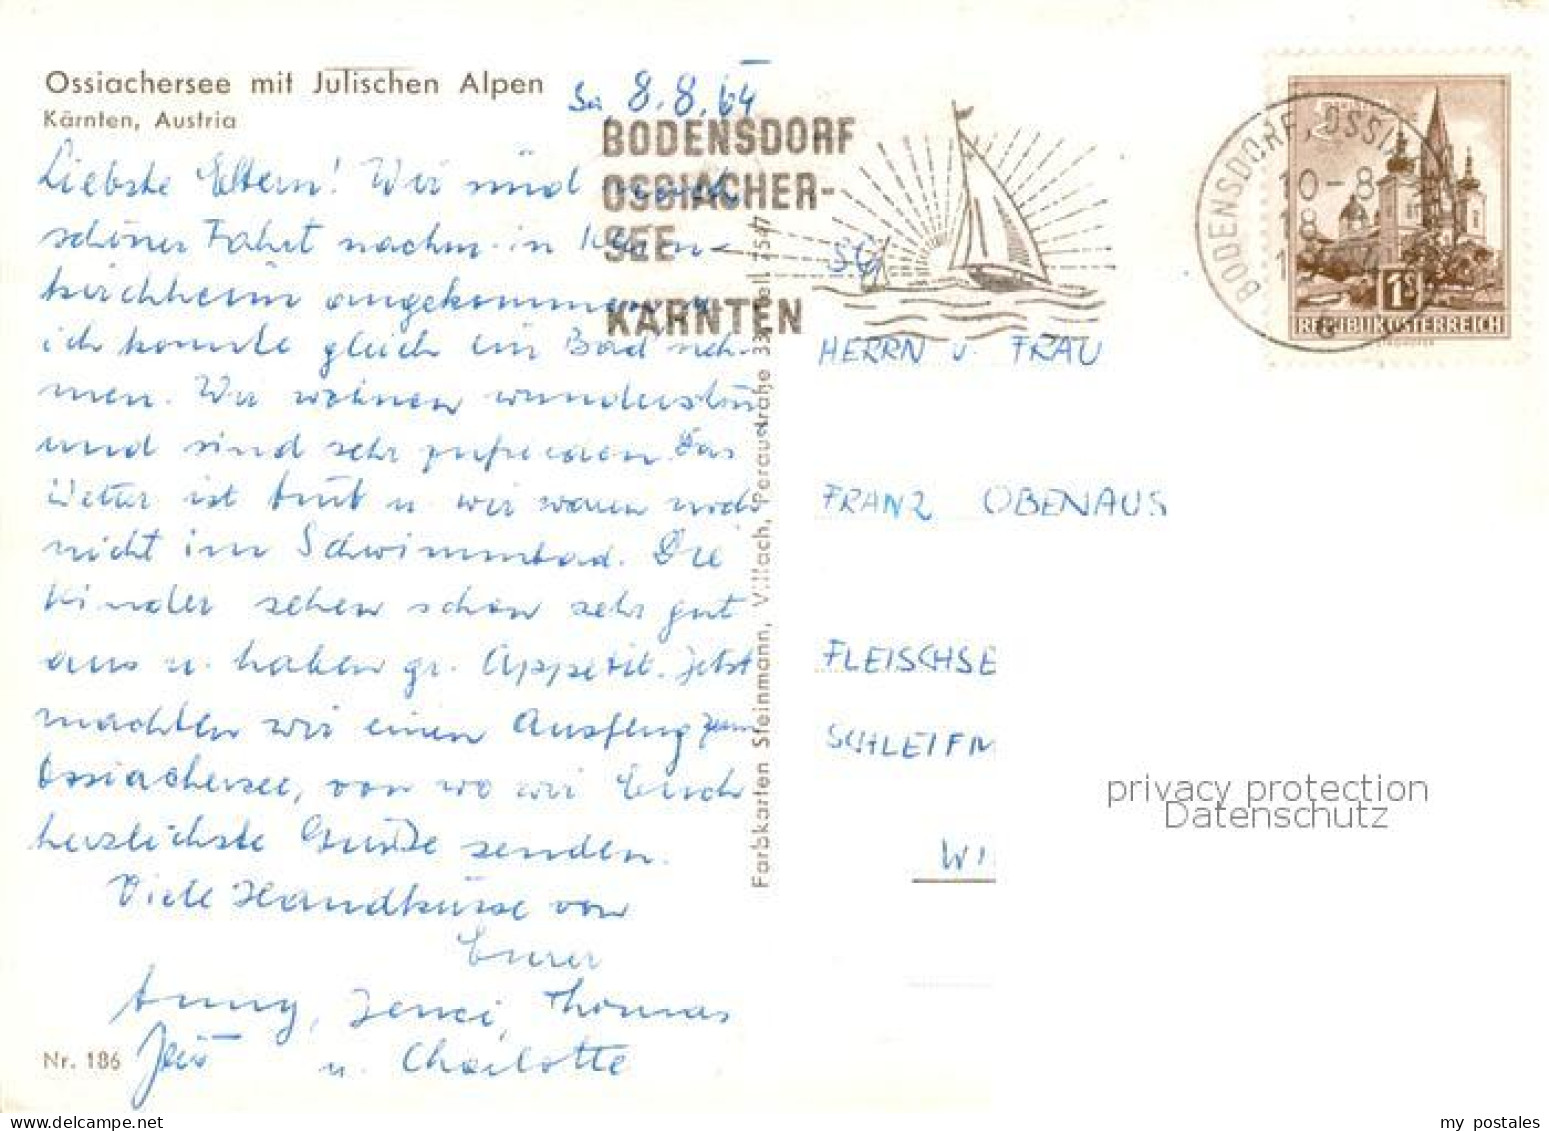 Ossiachersee mit Julischen Alpen
Kärnten, Austria
8.8.64
BODENSDORF
OSSIACHER-
SEE
KÄRNTEN
BODENSDORF, OSSI
10-8
18
1S
REPUBLIK ÖSTERREICH
Liebste Eltern! Wir sind nach
schöner Fahrt nachm. in Klein-
kirchheim angekommen u.
ich konnte gleich ein Bad neh-
men. Wir wohnen wunderschön
und sind sehr zufrieden. Das
Wetter ist trüb u. wir waren noch
nicht im Schwimmbad. Die
Kinder sehen schon sehr gut
aus u. haben gr. Appetit. Jetzt
machten wir einen Ausflug zum
Ossiachersee, von wo wir Euch
herzlichste Grüße senden.
Viele Handküsse von
Eurer
Anny, Jenci, Thomas
u. Charlotte
Nr. 186
Farbkarten Steinmann, Villach, Peraustraße 33, Tel. 7547
HERRN u. FRAU
FRANZ OBENAUS
FLEISCHSE
SCHLEIFM
WI
privacy protection
Datenschutz
my postales